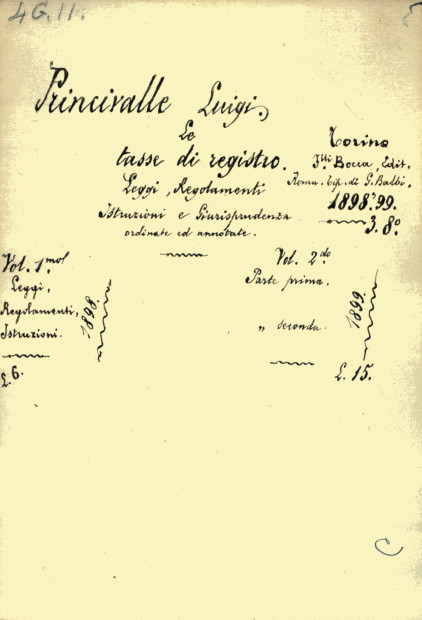 4G.11.
Princivalle Luigi.
Le
tasse di registro.
Leggi, Regolamenti
Istruzioni e Giurisprudenza
ordinate ed annotate.
Torino
Flli Bocca, Edit.
Roma. Tip. di G. Balbi.
1898-99.
3. 8.º
Vol. 1.mo
Leggi,
Regolamenti,
Istruzioni.
1898
L. 6.
Vol. 2.do
Parte prima.
„ seconda.
1899
L. 15.
C